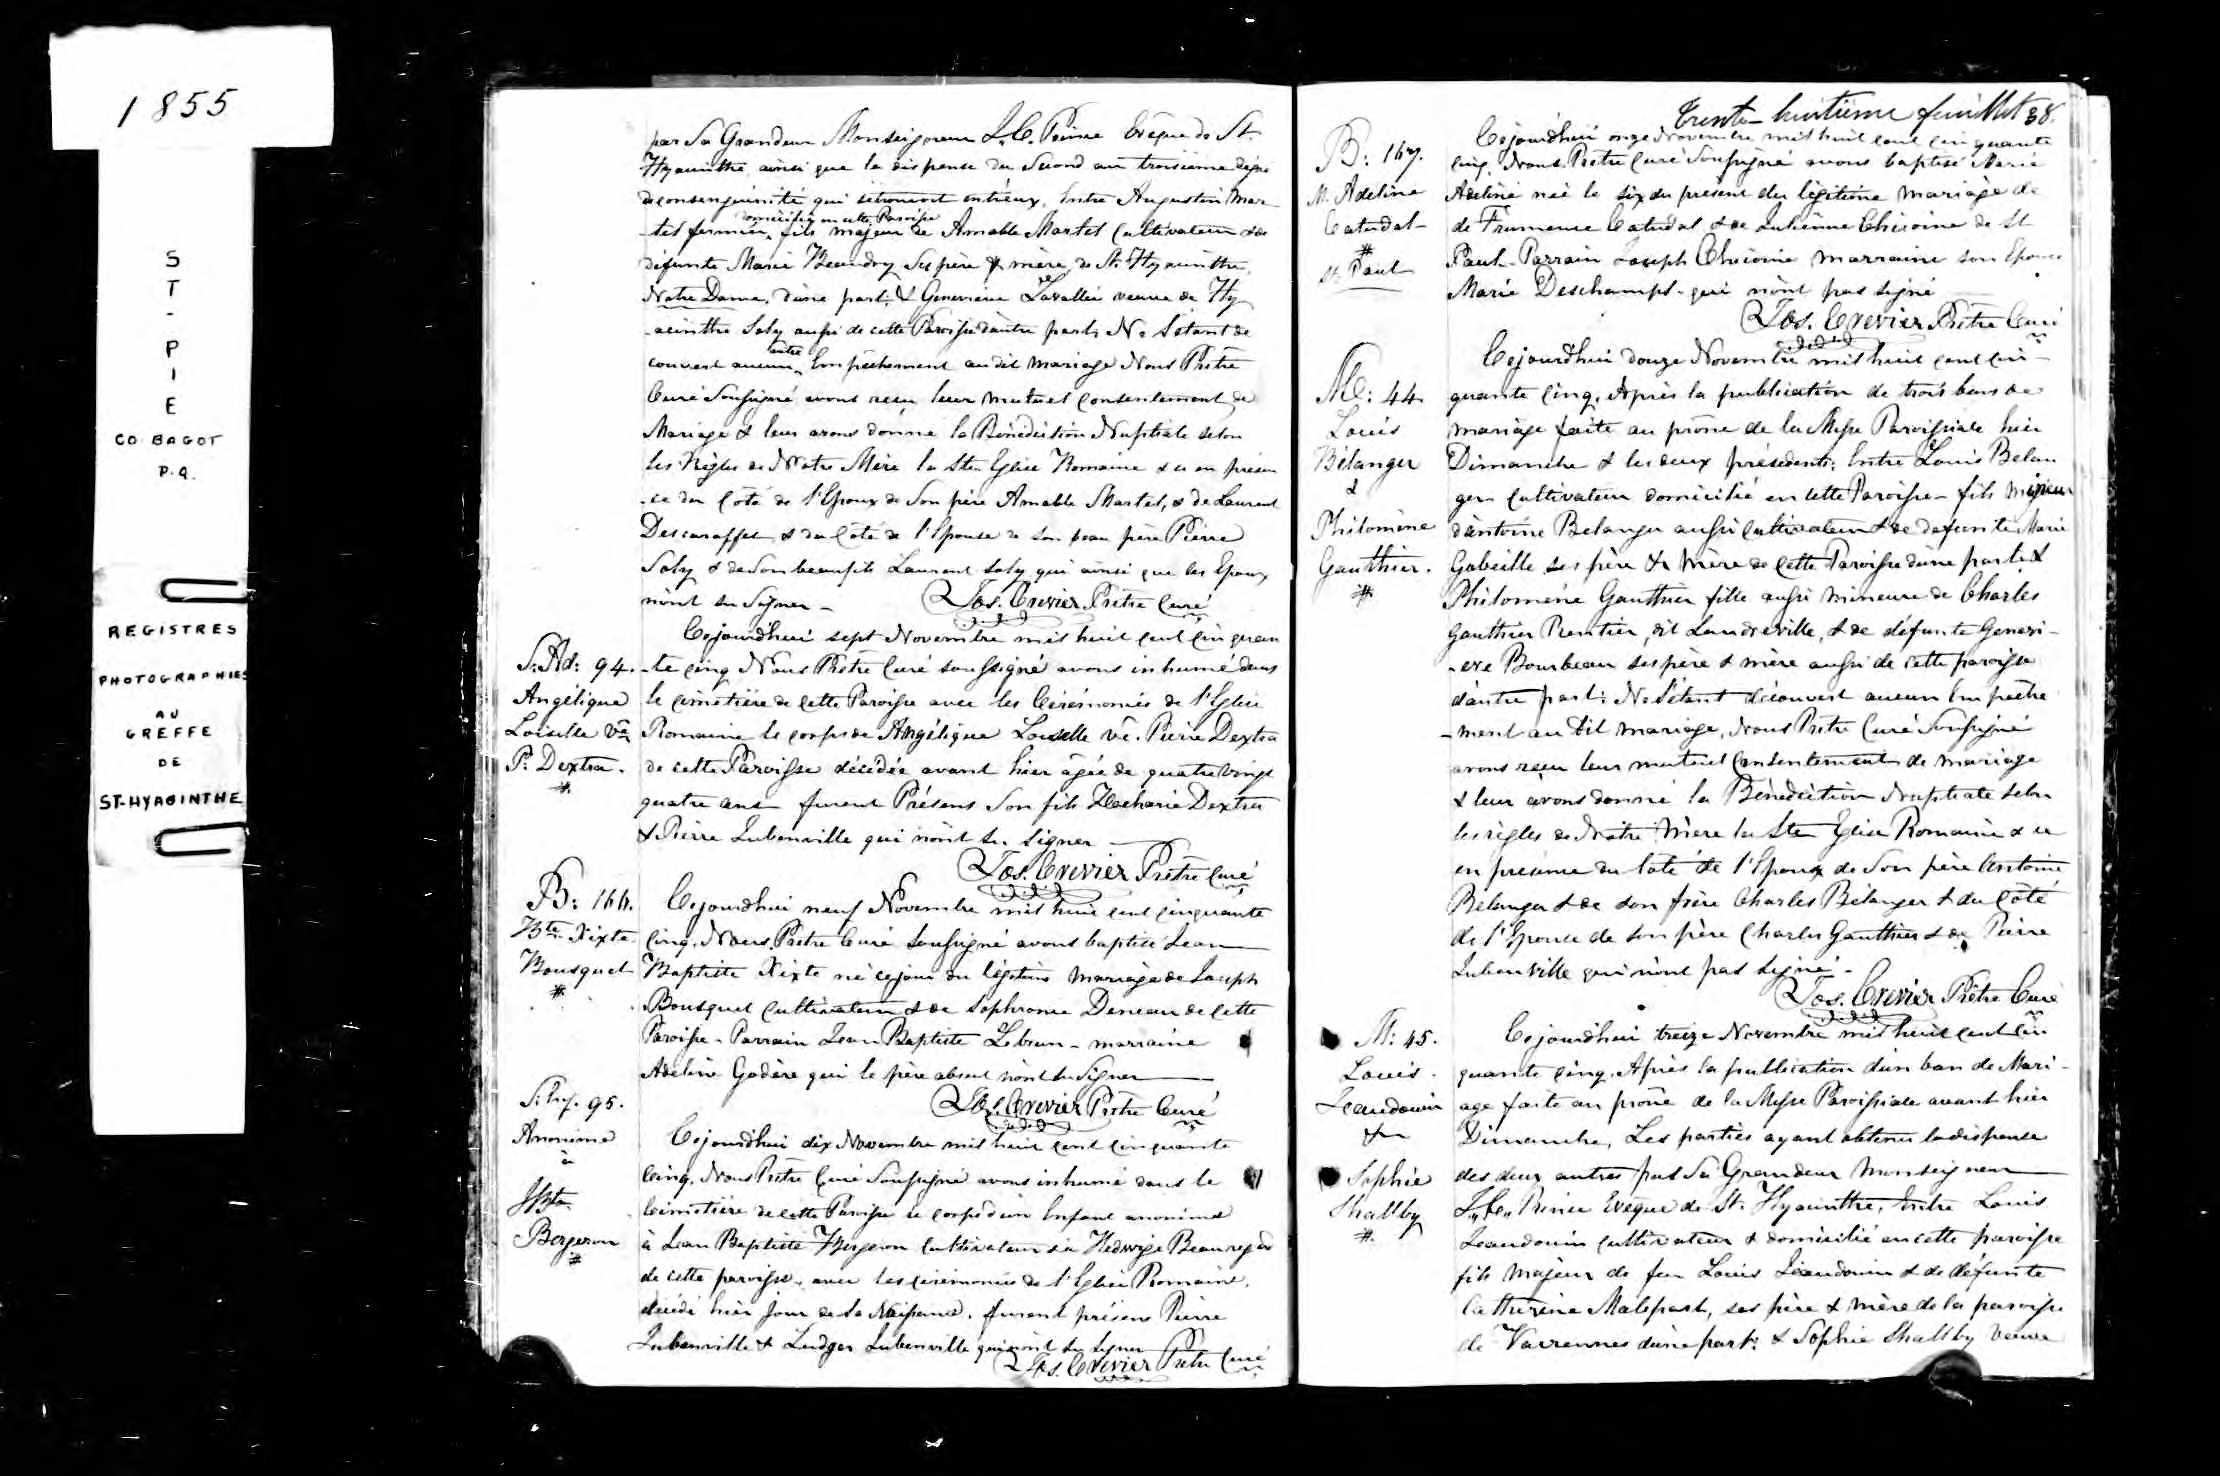 1855
S
T
-
P
I
E
CO. BAGOT
P.Q.
REGISTRES
PHOTOGRAPHIES
AU
GREFFE
DE
ST-HYACINTHE
par Sa Grandeur Monseigneur J. C. Prince Evêque de St.
Hyacinthe ainsi que la dispense du second au troisième dégré
de consenguinité qui se trouvoit entr'eux, Entre Augustin Mar-
domicilié en cette Paroisse
-tel fermier, fils majeur de Amable Martel Cultivateur & de
défunte Marie Beaudry ses père & mère, de St. Hyacinthe,
Notre Dame, d'une part, & Geneviève Lavallée veuve de Hy
-acinthe Soly aussi de cette Paroisse d'autre part, Ne S'étant dé
couvert aucun autre Empêchement au dit mariage Nous Prêtre
Curé Soussigné avons reçu leur mutuel consentement de
Mariage & leur avons donné la Bénédiction Nuptiale selon
les Règles de Notre Mère la Ste Eglise Romaine & ce en présen
-ce du Côté de l'Epoux de Son père Amable Martel, & de Laurent
& du Côté de l'Epouse de son beau père Pierre
Soly & de Son beaufils Laurent Soly qui ainsi que les Epoux
n'ont su Signer -
Jos. Crevier Prêtre Curé
S: Ad: 94.
Angélique
Loiselle Ve
P. Dextra.
#
Cejourdhui sept Novembre mil huit cent cinquan
-te cinq Nous Prêtre Curé soussigné avons inhumé dans
le cimetière de cette Paroisse avec les Cérémonies de l'Eglise
Romaine le corps de Angélique Loiselle ve. Pierre Dextra
de cette Paroisse décédée avant hier âgée de quatre vingt
quatre ans furent Présens Son fils Zacharie Dextra
& Pierre Jubenville qui n'ont su Signer
Jos. Crevier Prêtre Curé
B: 166.
J Bte Xixte
Bousquet
#
Cejourdhui neuf Novembre mil huit cent cinquante
cinq, Nous Prêtre Curé Soussigné avons baptisé Jean
Baptiste Xixte né ce jour du légitime mariage de Joseph
Bousquet Cultivateur & de Sophronie Deneau de cette
Paroisse - Parrain Jean Baptiste Lebrun - marraine
Adéline Godère qui le père absent n'ont su Signer
Jos. Crevier Prêtre Curé
95.
Anonime
à
J Bte
Bergeron
#
Cejourdhui dix Novembre mil huit cent cinquante
cinq, Nous Prêtre Curé Soussigné avons inhumé dans le
Cimetière de cette Paroisse le corps d'un Enfant anonime
à Jean Baptiste Bergeron Cultivateur & à Hedwige Beauregard
de cette paroisse, avec les cérémonies de l'Eglise Romaine,
décédé hier jour de sa Naissance. furent présens Pierre
Jubenville & Ludger Jubenville qui n'ont su Signer
Jos. Crevier Prêtre Curé
Trente-huitième feuillet 38.
B: 167.
M. Adeline
Catudal
#
St. Paul
Cejourdhui onze Novembre mil huit cent cinquante
cinq, Nous Prêtre Curé Soussigné avons baptisé Marie
Adeline née le six du présent du légitime mariage de
de Frumence Catudal & de Julienne Chicoine de St
Paul. Parrain Joseph Chicoine marraine son Epouse
Marie Deschamps - qui n'ont pas signé
Jos. Crevier Prêtre Curé
M: 44.
Louis
Bélanger
&
Philomène
Gauthier.
#
Cejourdhui douze Novembre mil huit cent cin-
quante cinq, Après la publication de trois bans de
mariage faite au prône de la Messe Paroissiale hier
Dimanche & les deux précédents; Entre Louis Bélan
ger cultivateur domicilié en cette Paroisse - fils Majeur
d'Antoine Bélanger aussi Cultivateur & de défunte Marie
Gobeille ses père & Mère de cette Paroisse d'une part &
Philomène Gauthier fille aussi mineure de Charles
Gauthier Rentier, dit Landreville, & de défunte Genevi-
-eve Bourbeau ses père & mère aussi de cette paroisse
d'autre part: Ne S'étant découvert aucun Empêche
-ment au dit mariage, Nous Prêtre Curé Soussigné
avons reçu leur mutuel Consentement de mariage
& leur avons donné la Bénédiction Nuptiale selon
les règles de Notre Mère la Ste Eglise Romaine & ce
en présence du Coté de l'Epoux de Son père Antoine
Bélanger & de son frère Charles Bélanger & du Côté
de l'Epouse de son père Charles Gauthier & de Pierre
Jubenville qui n'ont pas signé -
Jos. Crevier Prêtre Curé
M: 45.
Louis
Jeaudouin
&
Sophie
Shallby
#
Cejourdhui treize Novembre mil huit cent cin
quante cinq, Après la publication d'un ban de Mari-
age faite au prône de la Messe Paroissiale avant hier
Dimanche, Les parties ayant obtenu la dispense
des deux autres par Sa Grandeur Monseigneur
J. C. Prince Evêque de St. Hyacinthe, Entre Louis
Jeaudouin cultivateur & domicilié en cette paroisse
fils Majeur de feu Louis Jeaudouin & de défunte
Catherine Malepart, ses père & mère de la paroisse
de Varennes d'une part: & Sophie Shallby veuve